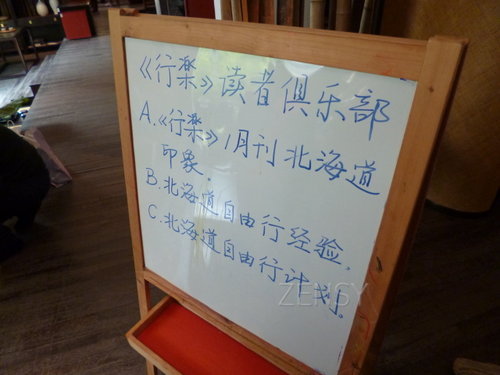 《行樂》读者俱乐部
A.《行樂》1月刊北海道
印象.
B.北海道自由行经验,
C.北海道自由行计划。
ZENSY